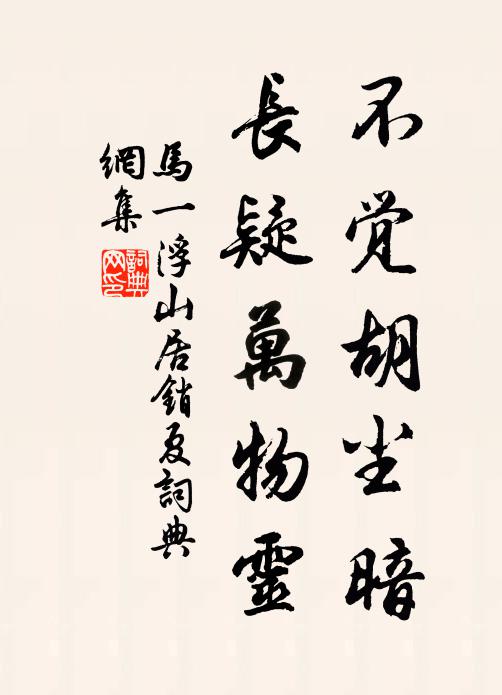 不觉胡尘暗
長疑萬物靈
馬一浮山居銷夏詞典
網集
詞典
网印